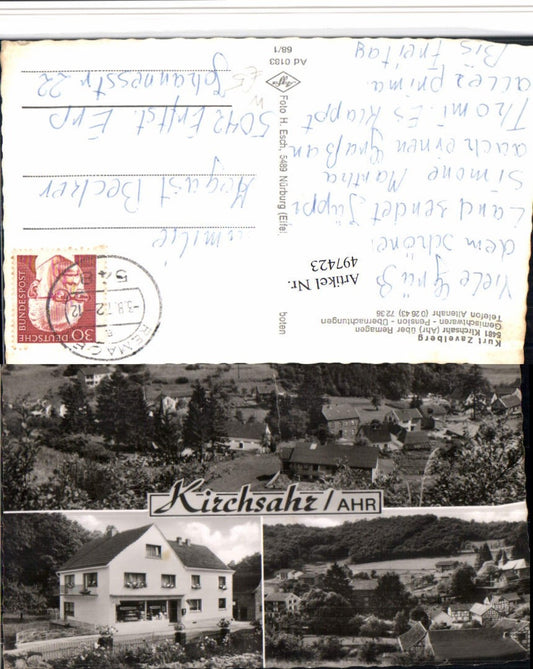 Kurt Zavelberg
5481 Kirchsahr (Ahr) über Remagen
Gemischtwaren - Pension - Übernachtungen
Telefon Altenahr (0 26 43) 72 36
Viele Grüße
dem schöne
Land sendet Jüppi
Simone Martha
auch einen Gruß an
Thomi. Es klappt
alles prima.
Bis Freitag
Foto H. Esch, 5489 Nürburg (Eifel
boten
Agfa
Ad 0183
68/1
Artikel Nr.
497423
milie
August Becker
5042 Erftst. Erp
Johannesstr. 22
DEUTSCHE BUNDESPOST
30
REMAGEN
-3.8.72-12
Kirchsahr / AHR